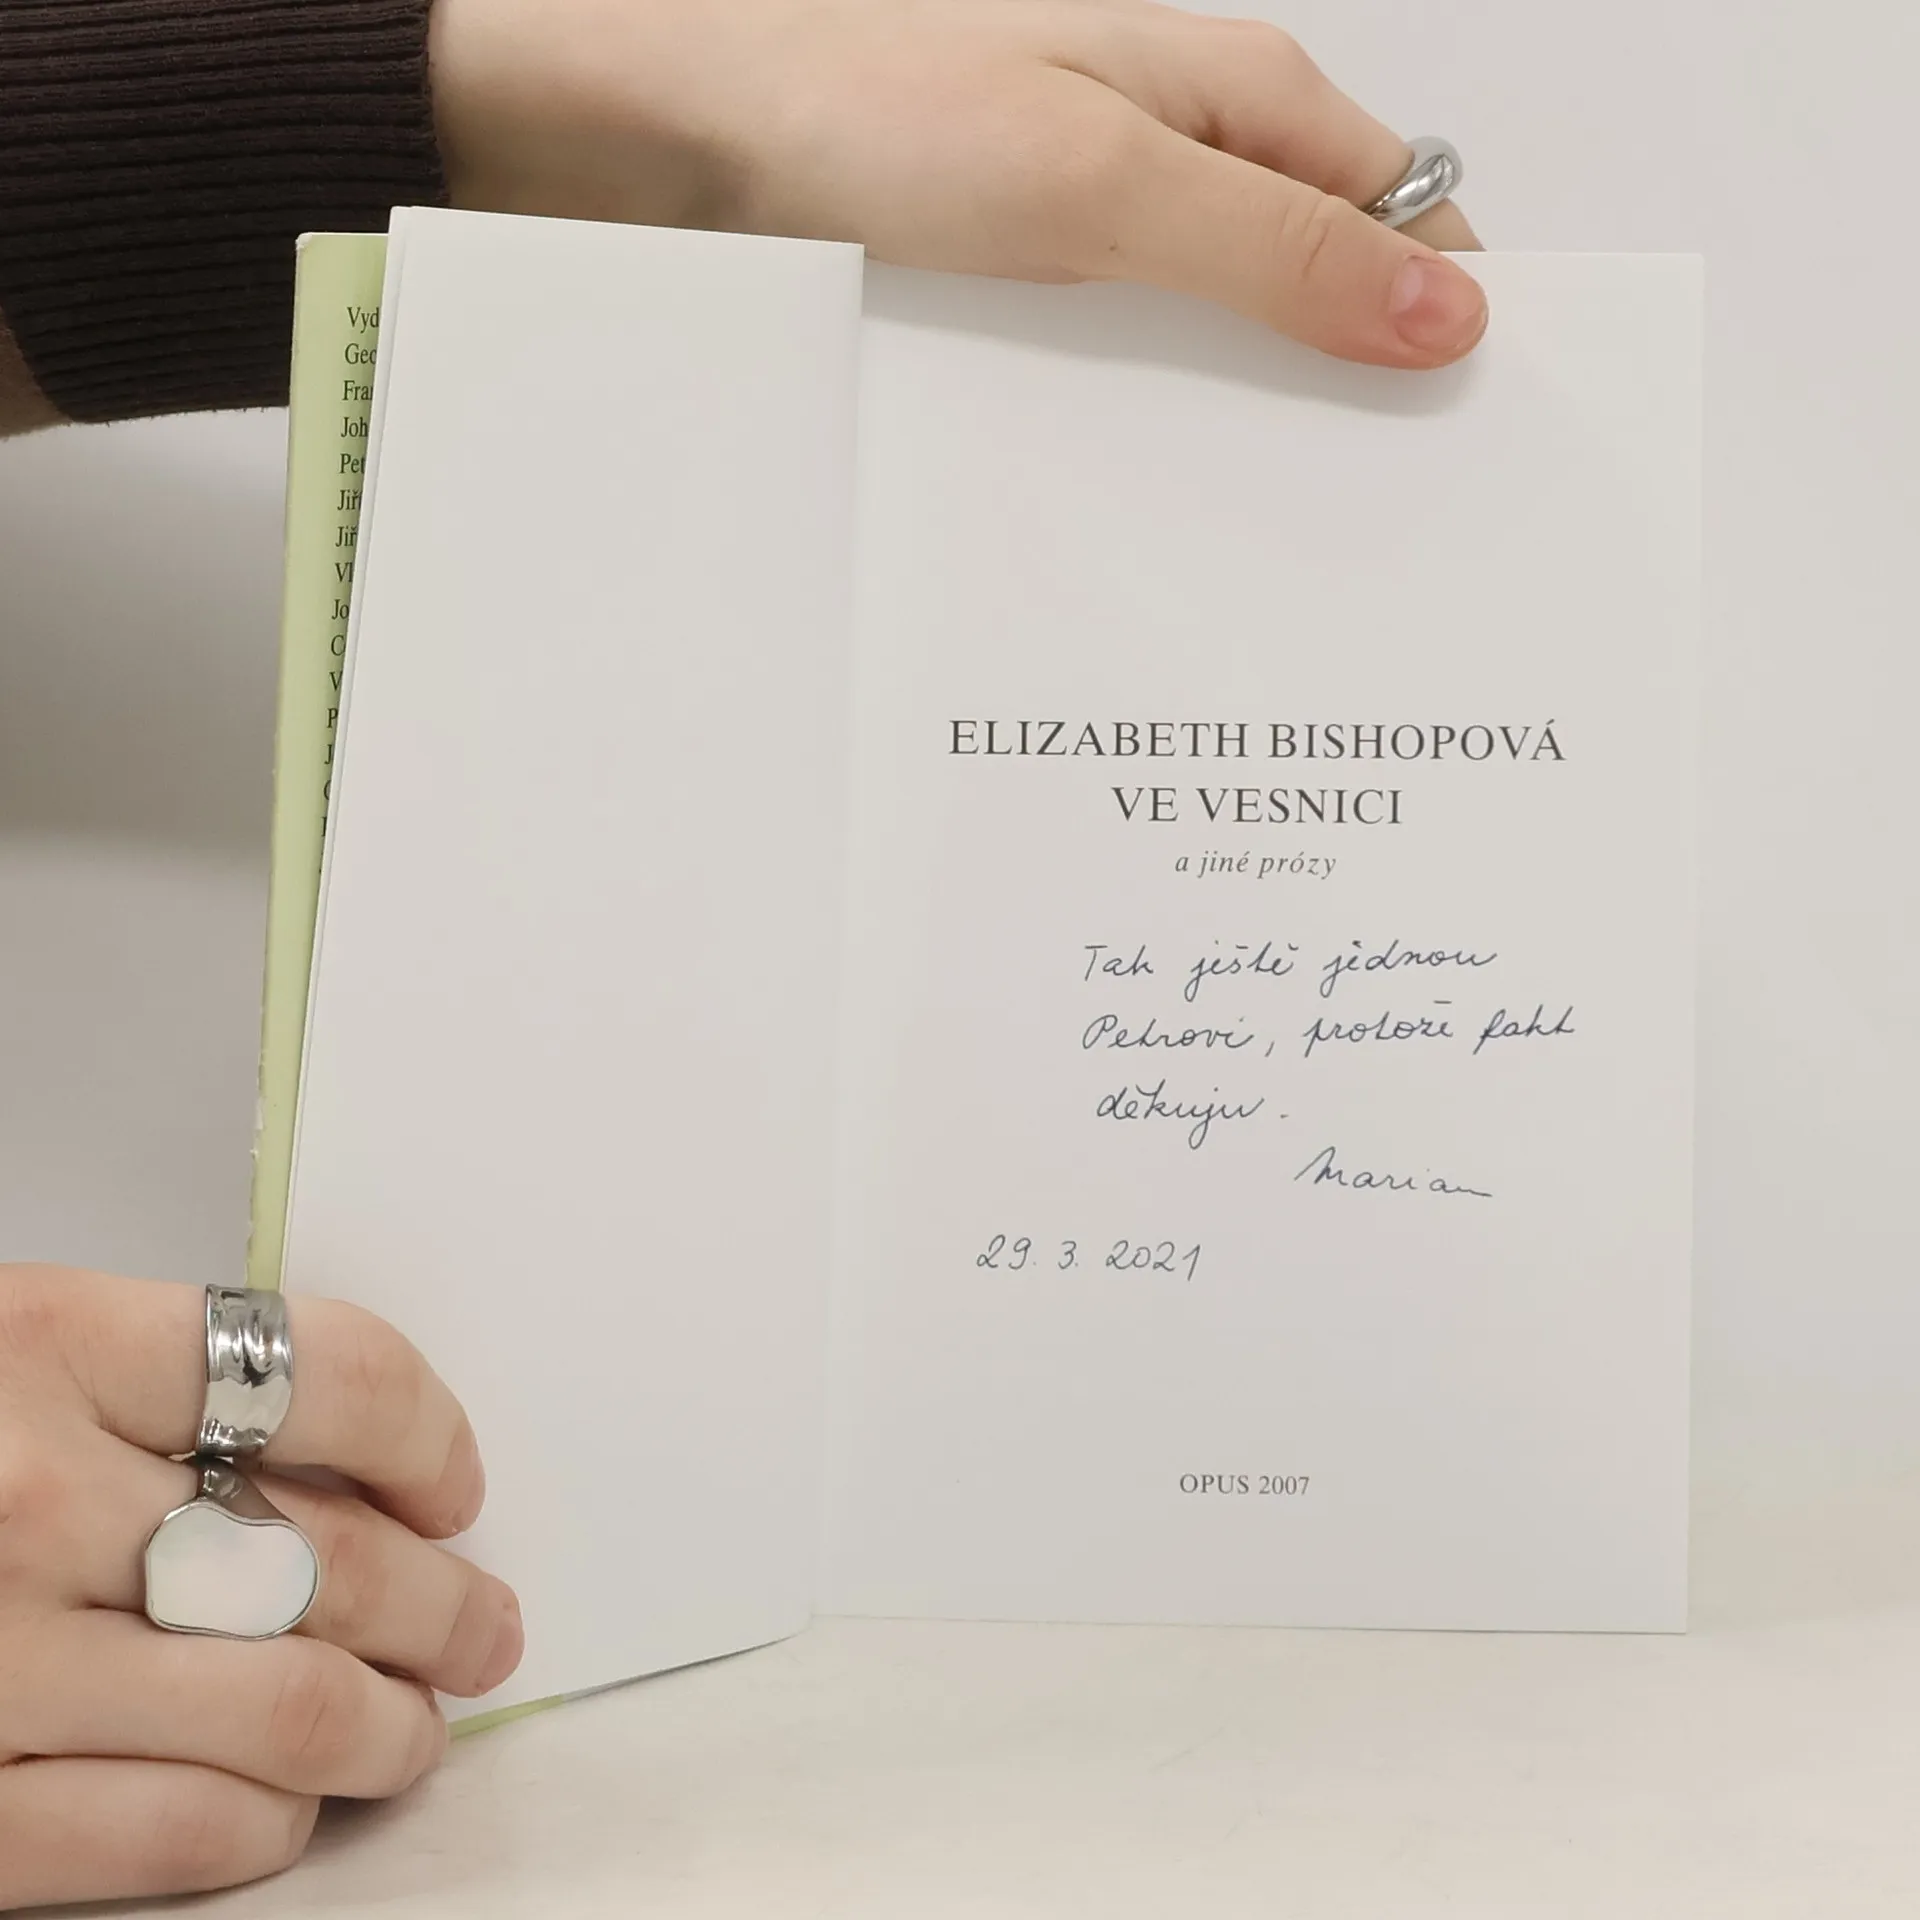 Vyd
Geo
Fra
Joh
Pet
Jiř
Jiř
Vl
Jo
V
P
J
ELIZABETH BISHOPOVÁ
VE VESNICI
a jiné prózy
Tak ještě jednou
Petrovi, protože fakt
děkuju.
Marian
29. 3. 2021
OPUS 2007